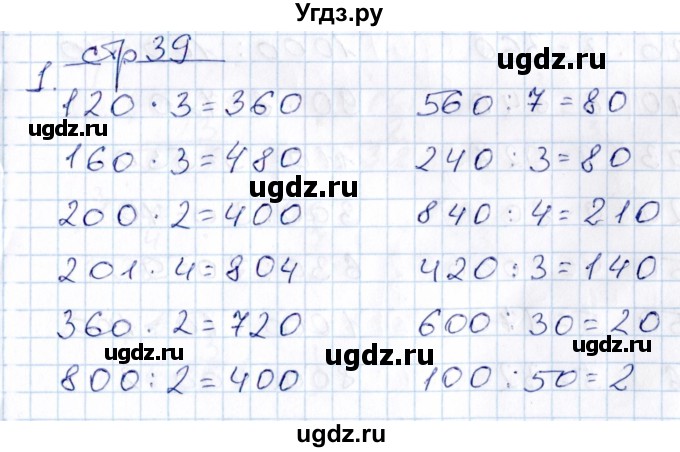 Угдз.ру
стр 39
1.
120 · 3 = 360 560 : 7 = 80
ugdz.ru ugdz.ru
160 · 3 = 480 240 : 3 = 80
ugdz.ru
200 · 2 = 400 840 : 4 = 210
201 · 4 = 804 420 : 3 = 140
360 · 2 = 720 600 : 30 = 20
ugdz.ru ugdz.ru ugdz.ru
800 : 2 = 400 100 : 50 = 2
ugdz.ru